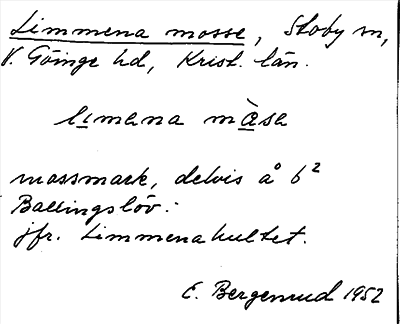 Limmena mosse, Stoby sn,
V. Göinge hd, Krist. län.
lımena må̱sa
mossmark, delvis å 6²
Ballingslöv.
jfr. Limmenahultet.
E. Bergenrud 1952